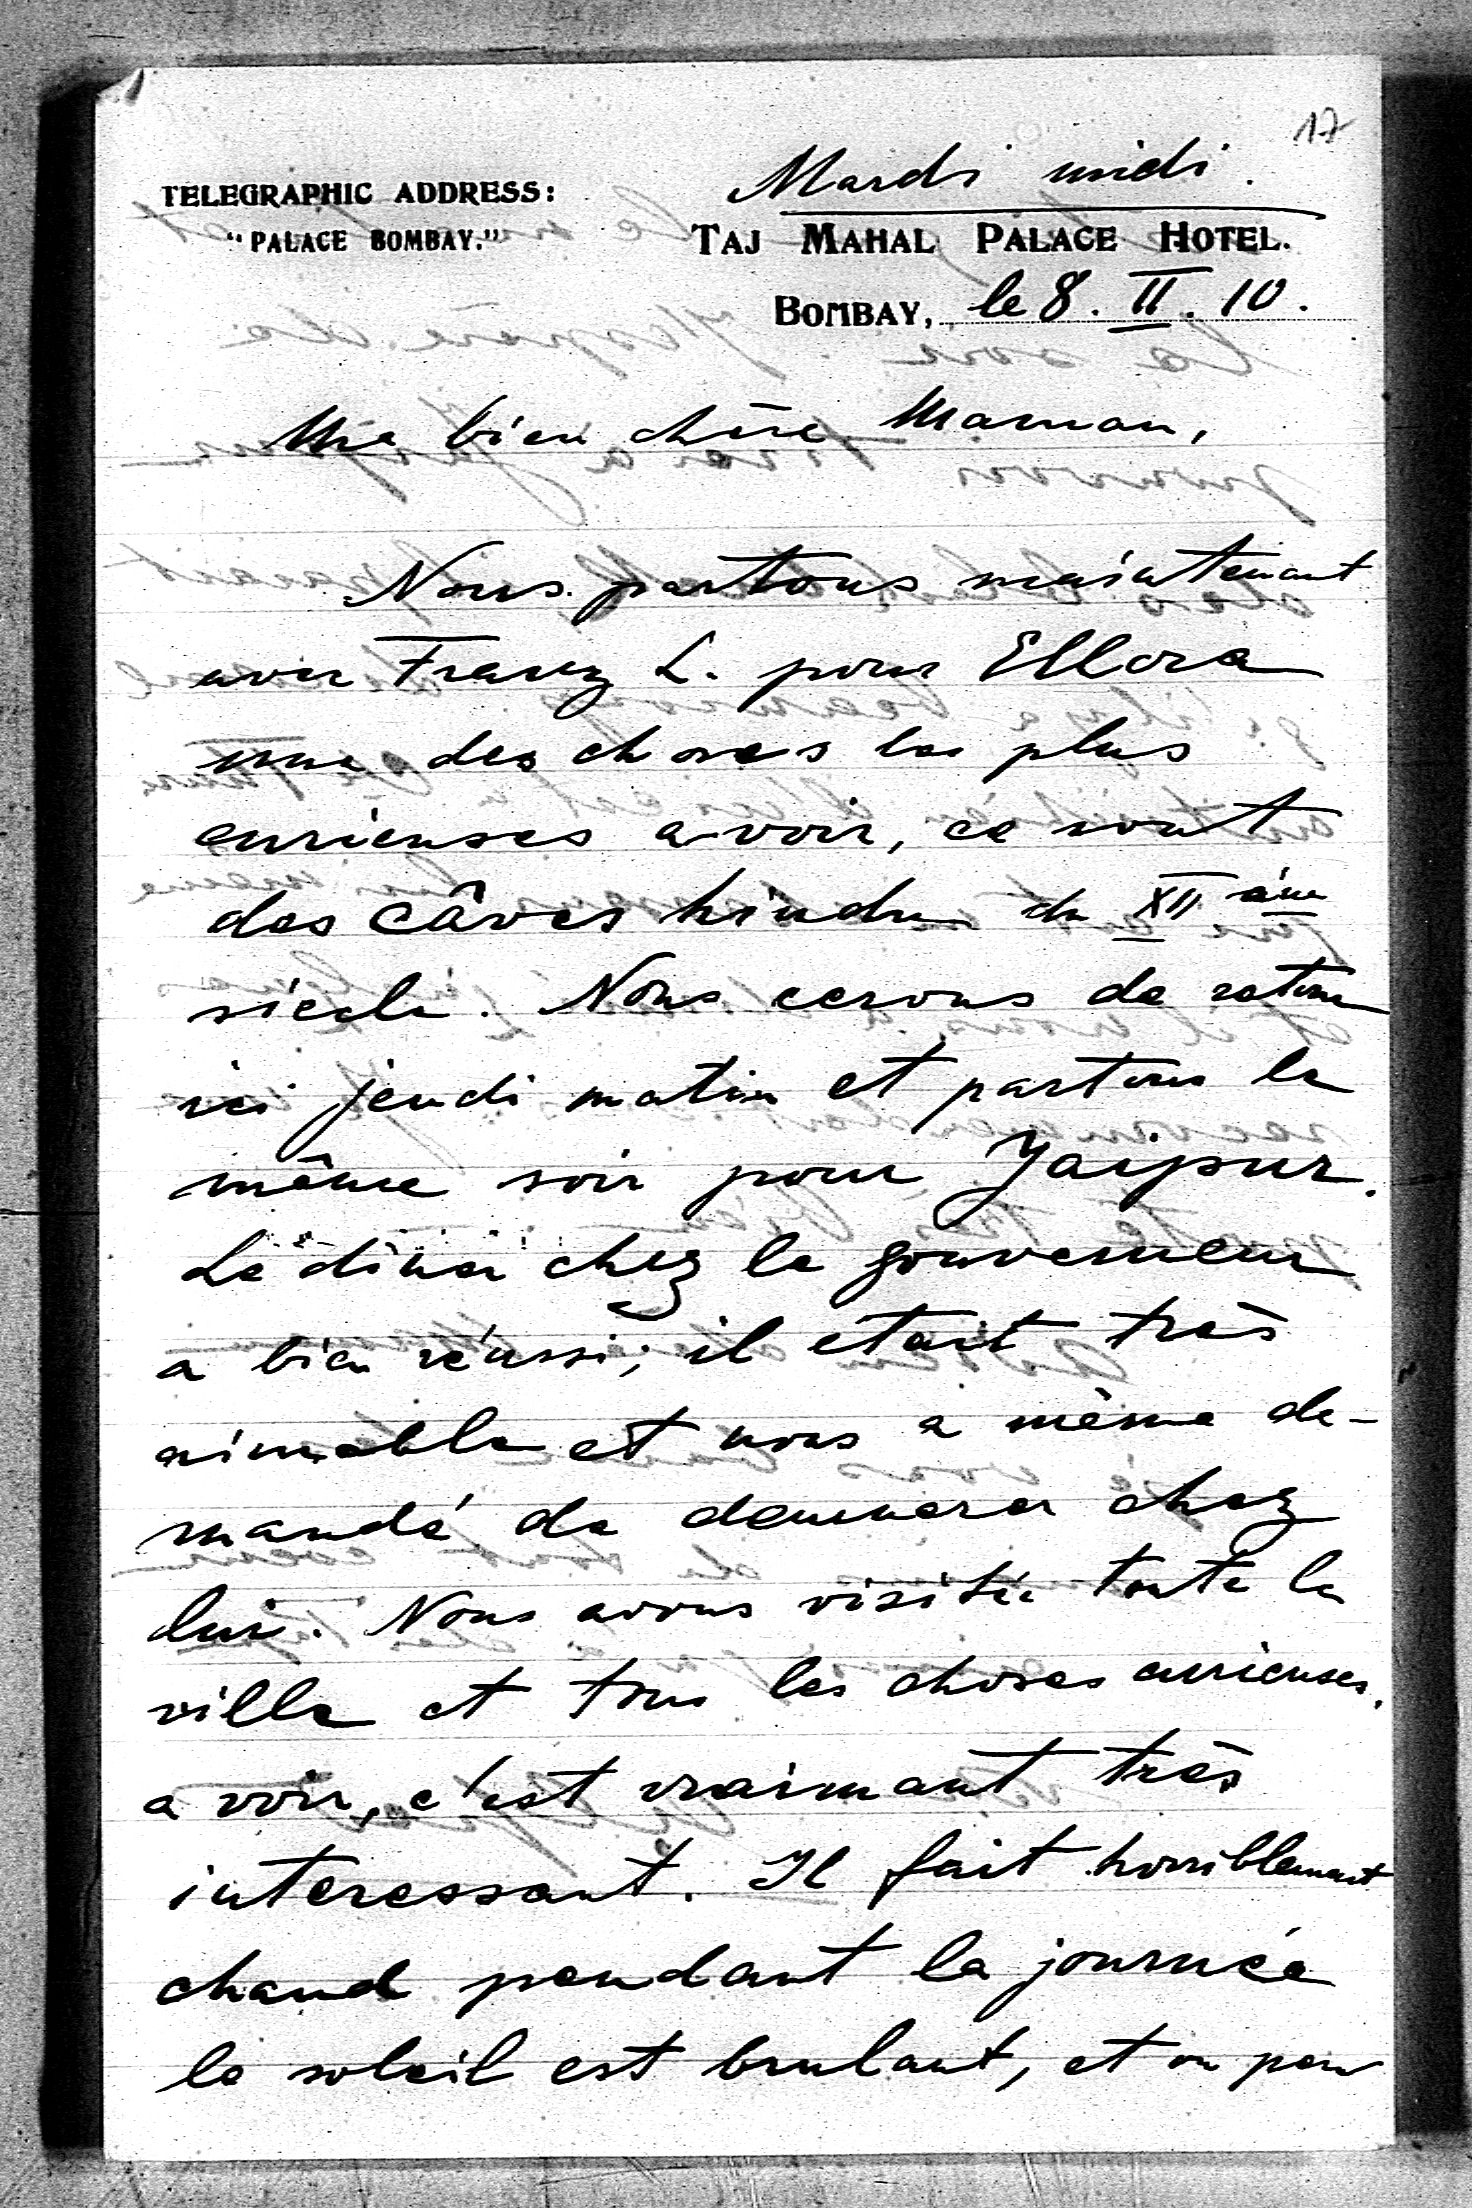 17
Mardi midi.
TELEGRAPHIC ADDRESS:
"PALACE BOMBAY."
TAJ MAHAL PALACE HOTEL.
BOMBAY, le 8. II. 10.
Ma bien chère Maman,
Nous partons maintenant
avec Franz L. pour Ellora
une des choses les plus
curieuses a voir, ce sont
des câves hindu du XII ème
siècle. Nous serons de retour
ici jeudi matin et partons le
même soir pour Jaipur.
Le diner chez le gouverneur
a bien réussi; il etait très
aimable et nous a même de-
mandé de demeurer chez
lui. Nous avons visitée toute la
ville et tous les choses curieuses
a voir, c'est vraimant très
interessant. Il fait horriblemant
chaud pendant la journée
le soleil est brulant, et on peu